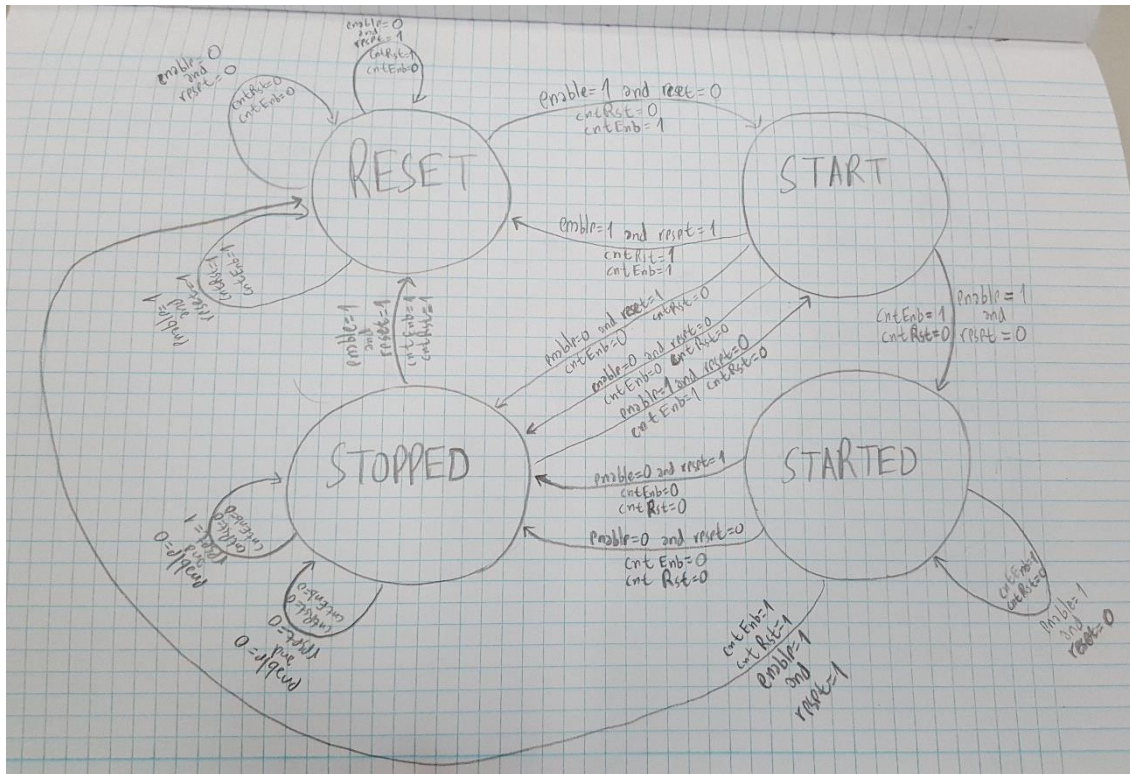 enable=0
and
reset=0
cntRst=0
cntEnb=0
enable=0
and
reset=1
cntRst=1
cntEnb=0
enable=1 and reset=0
cntRst=0
cntEnb=1
RESET
START
enable=1 and reset=1
cntRst=1
cntEnb=1
cntEnb=1
cntRst=1
reset=1
and
enable=1
enable=1
and
reset=1
cntEnb=1
cntRst=1
enable=0 and reset=1
cntEnb=0 cntRst=0
enable=0 and reset=0
cntEnb=0 cntRst=0
enable=1 and reset=0
cntEnb=1 cntRst=0
enable=1
and
reset=0
cntEnb=1
cntRst=0
STOPPED
STARTED
enable=0 and reset=1
cntEnb=0
cntRst=0
enable=0 and reset=0
cntEnb=0
cntRst=0
cntEnb=0
cntRst=0
reset=1
and
enable=0
cntEnb=0
cntRst=0
reset=0
and
enable=0
cntEnb=1
cntRst=1
enable=1
and
reset=1
cntRst=0
enable=1
and
reset=0